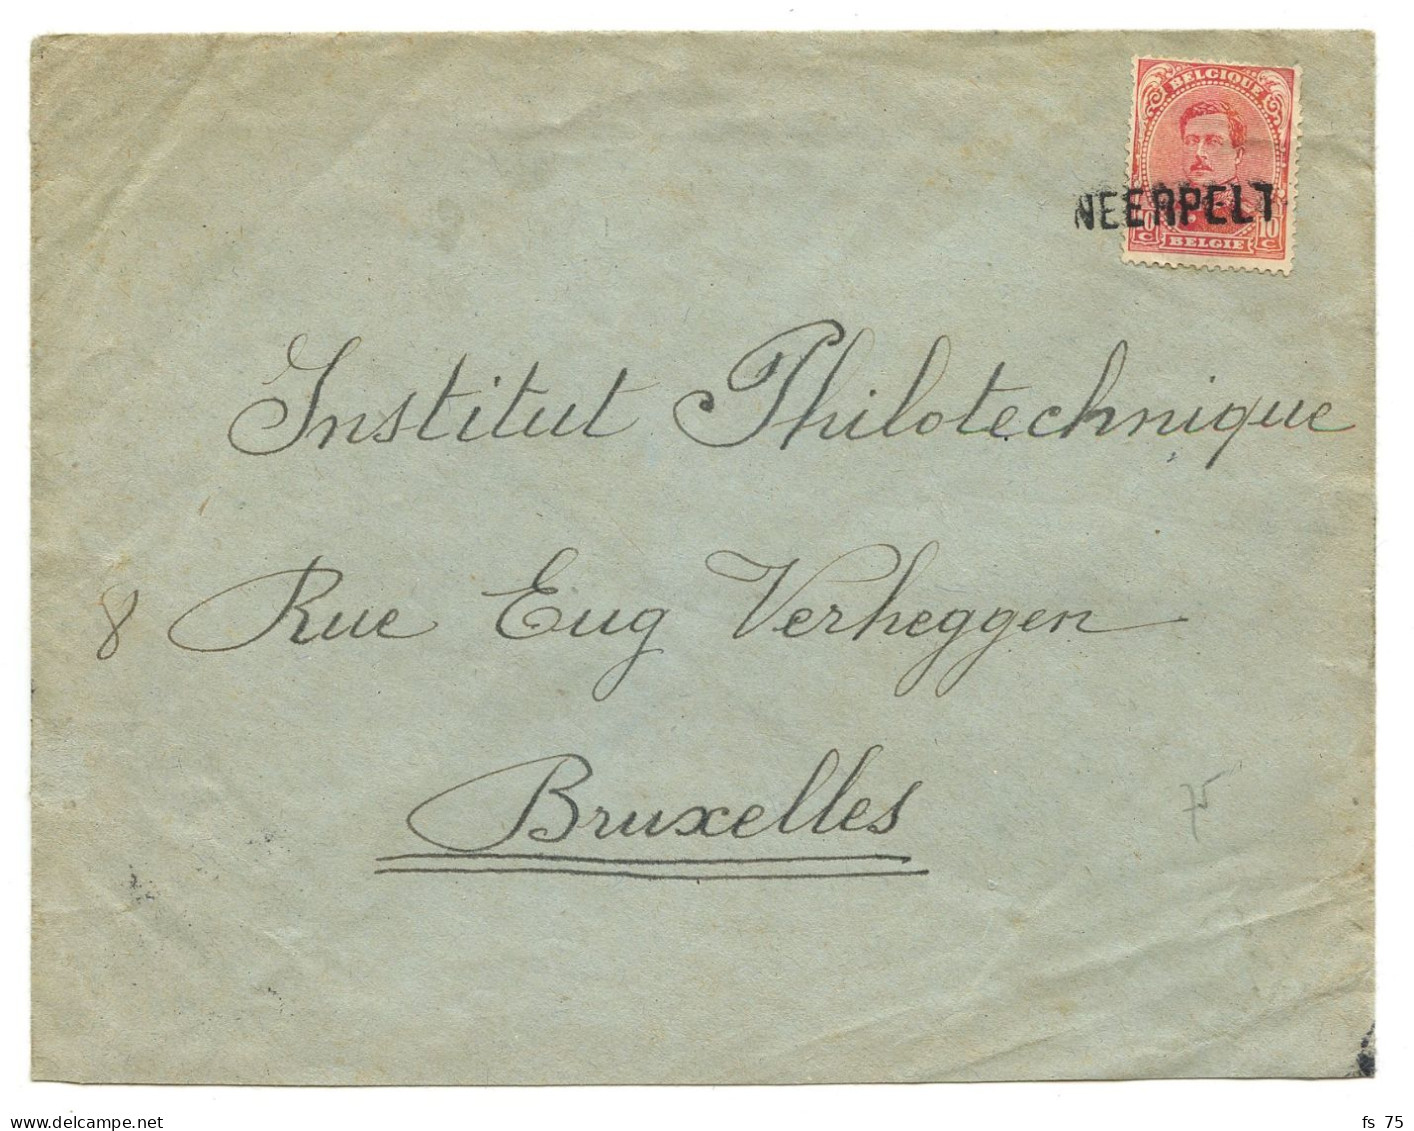 BELGIQUE
NEERPELT
10 C 10 C
BELGIE
Institut Philotechnique
8 Rue Eug Verheggen
Bruxelles
75
delcampe.net
fs 75